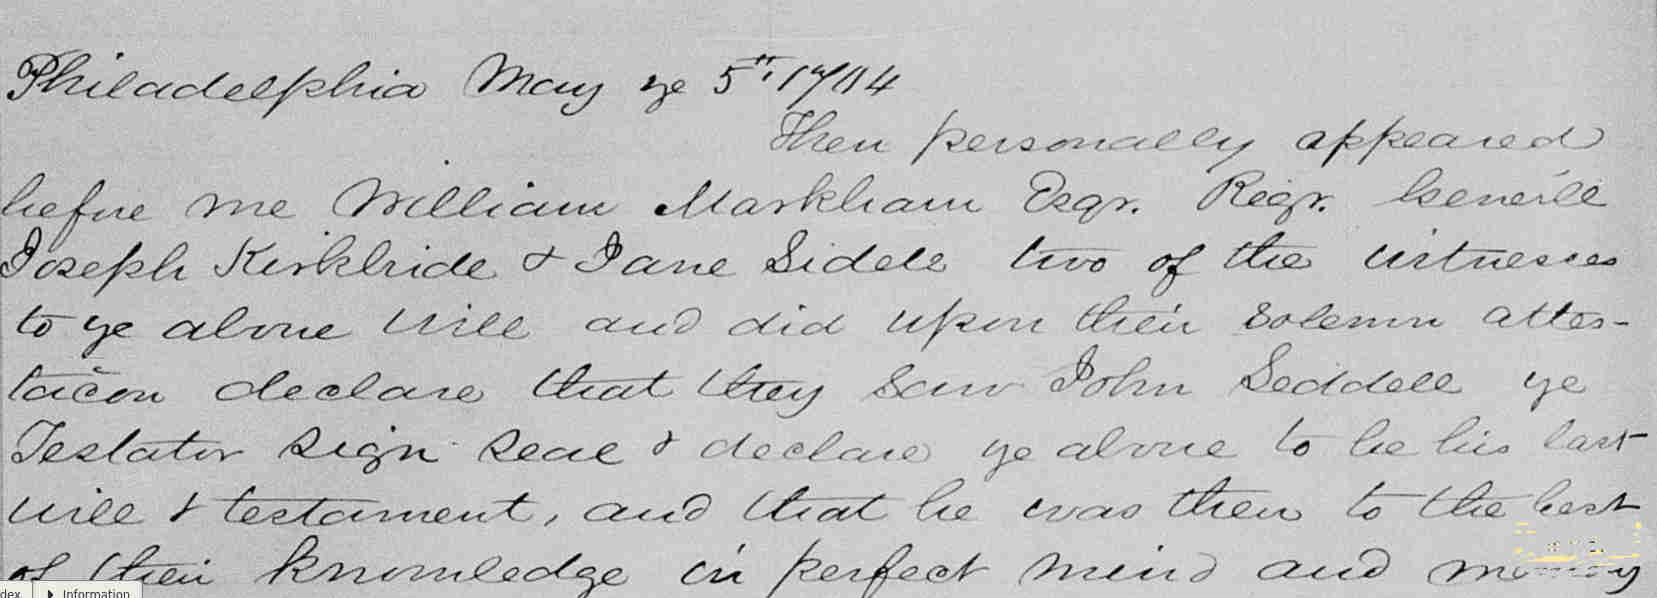 Philadelphia May ye 5th, 1704
Then personally appeared
before me William Markham Esqr. Regr. Generll
Joseph Kirkbride & Jane Sidell two of the witnesses
to ye above will and did upon their solemn attes-
tacon declare that they saw John Seddell ye
Testator sign seal & declare ye above to be his last
will & testament, and that he was then to the best
of their knowledge in perfect mind and
dex.
Information